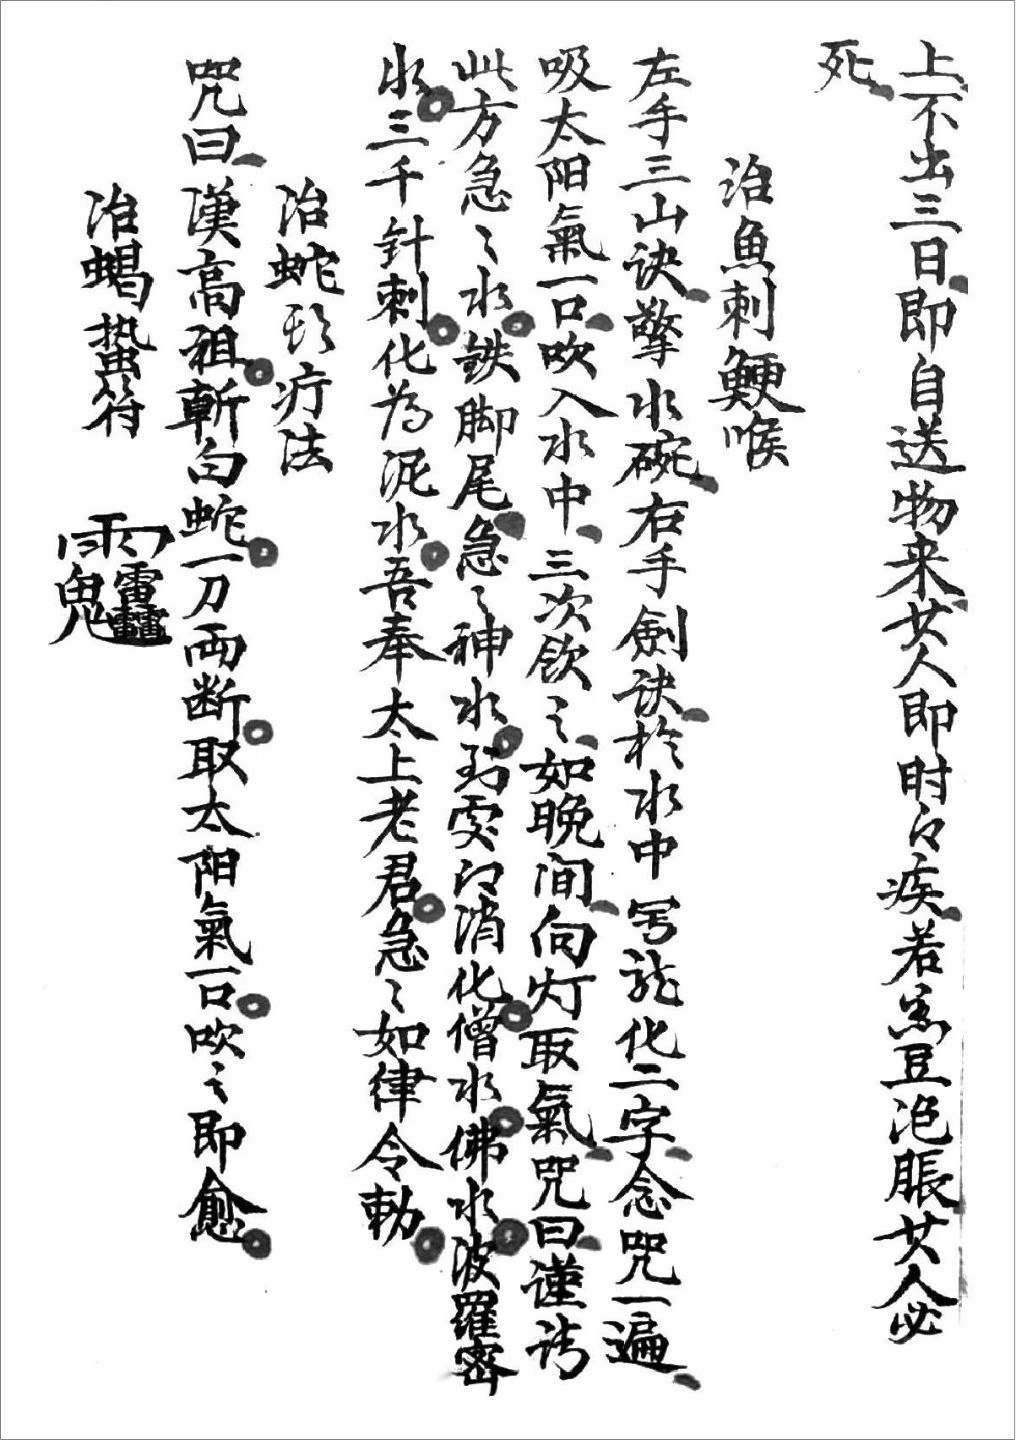 上不出三日即自送物来女人即时得疾若黑豆泡脹女人必
死
治魚刺鯁喉
左手三山诀擎水碗右手劍诀於水中写龍化二字念咒一遍
吸太阳氣一口吹入水中三次飲之如晚间向灯取氣咒曰谨请
此方急〻水鉄脚尾急〻神水到處得消化僧水佛水波羅密
水三千针刺化为泥水吾奉太上老君急〻如律令勅
治蛇形疔法
咒曰漢高祖斬白蛇一刀両断取太阳氣一口吹之即愈
治蝎蛰符